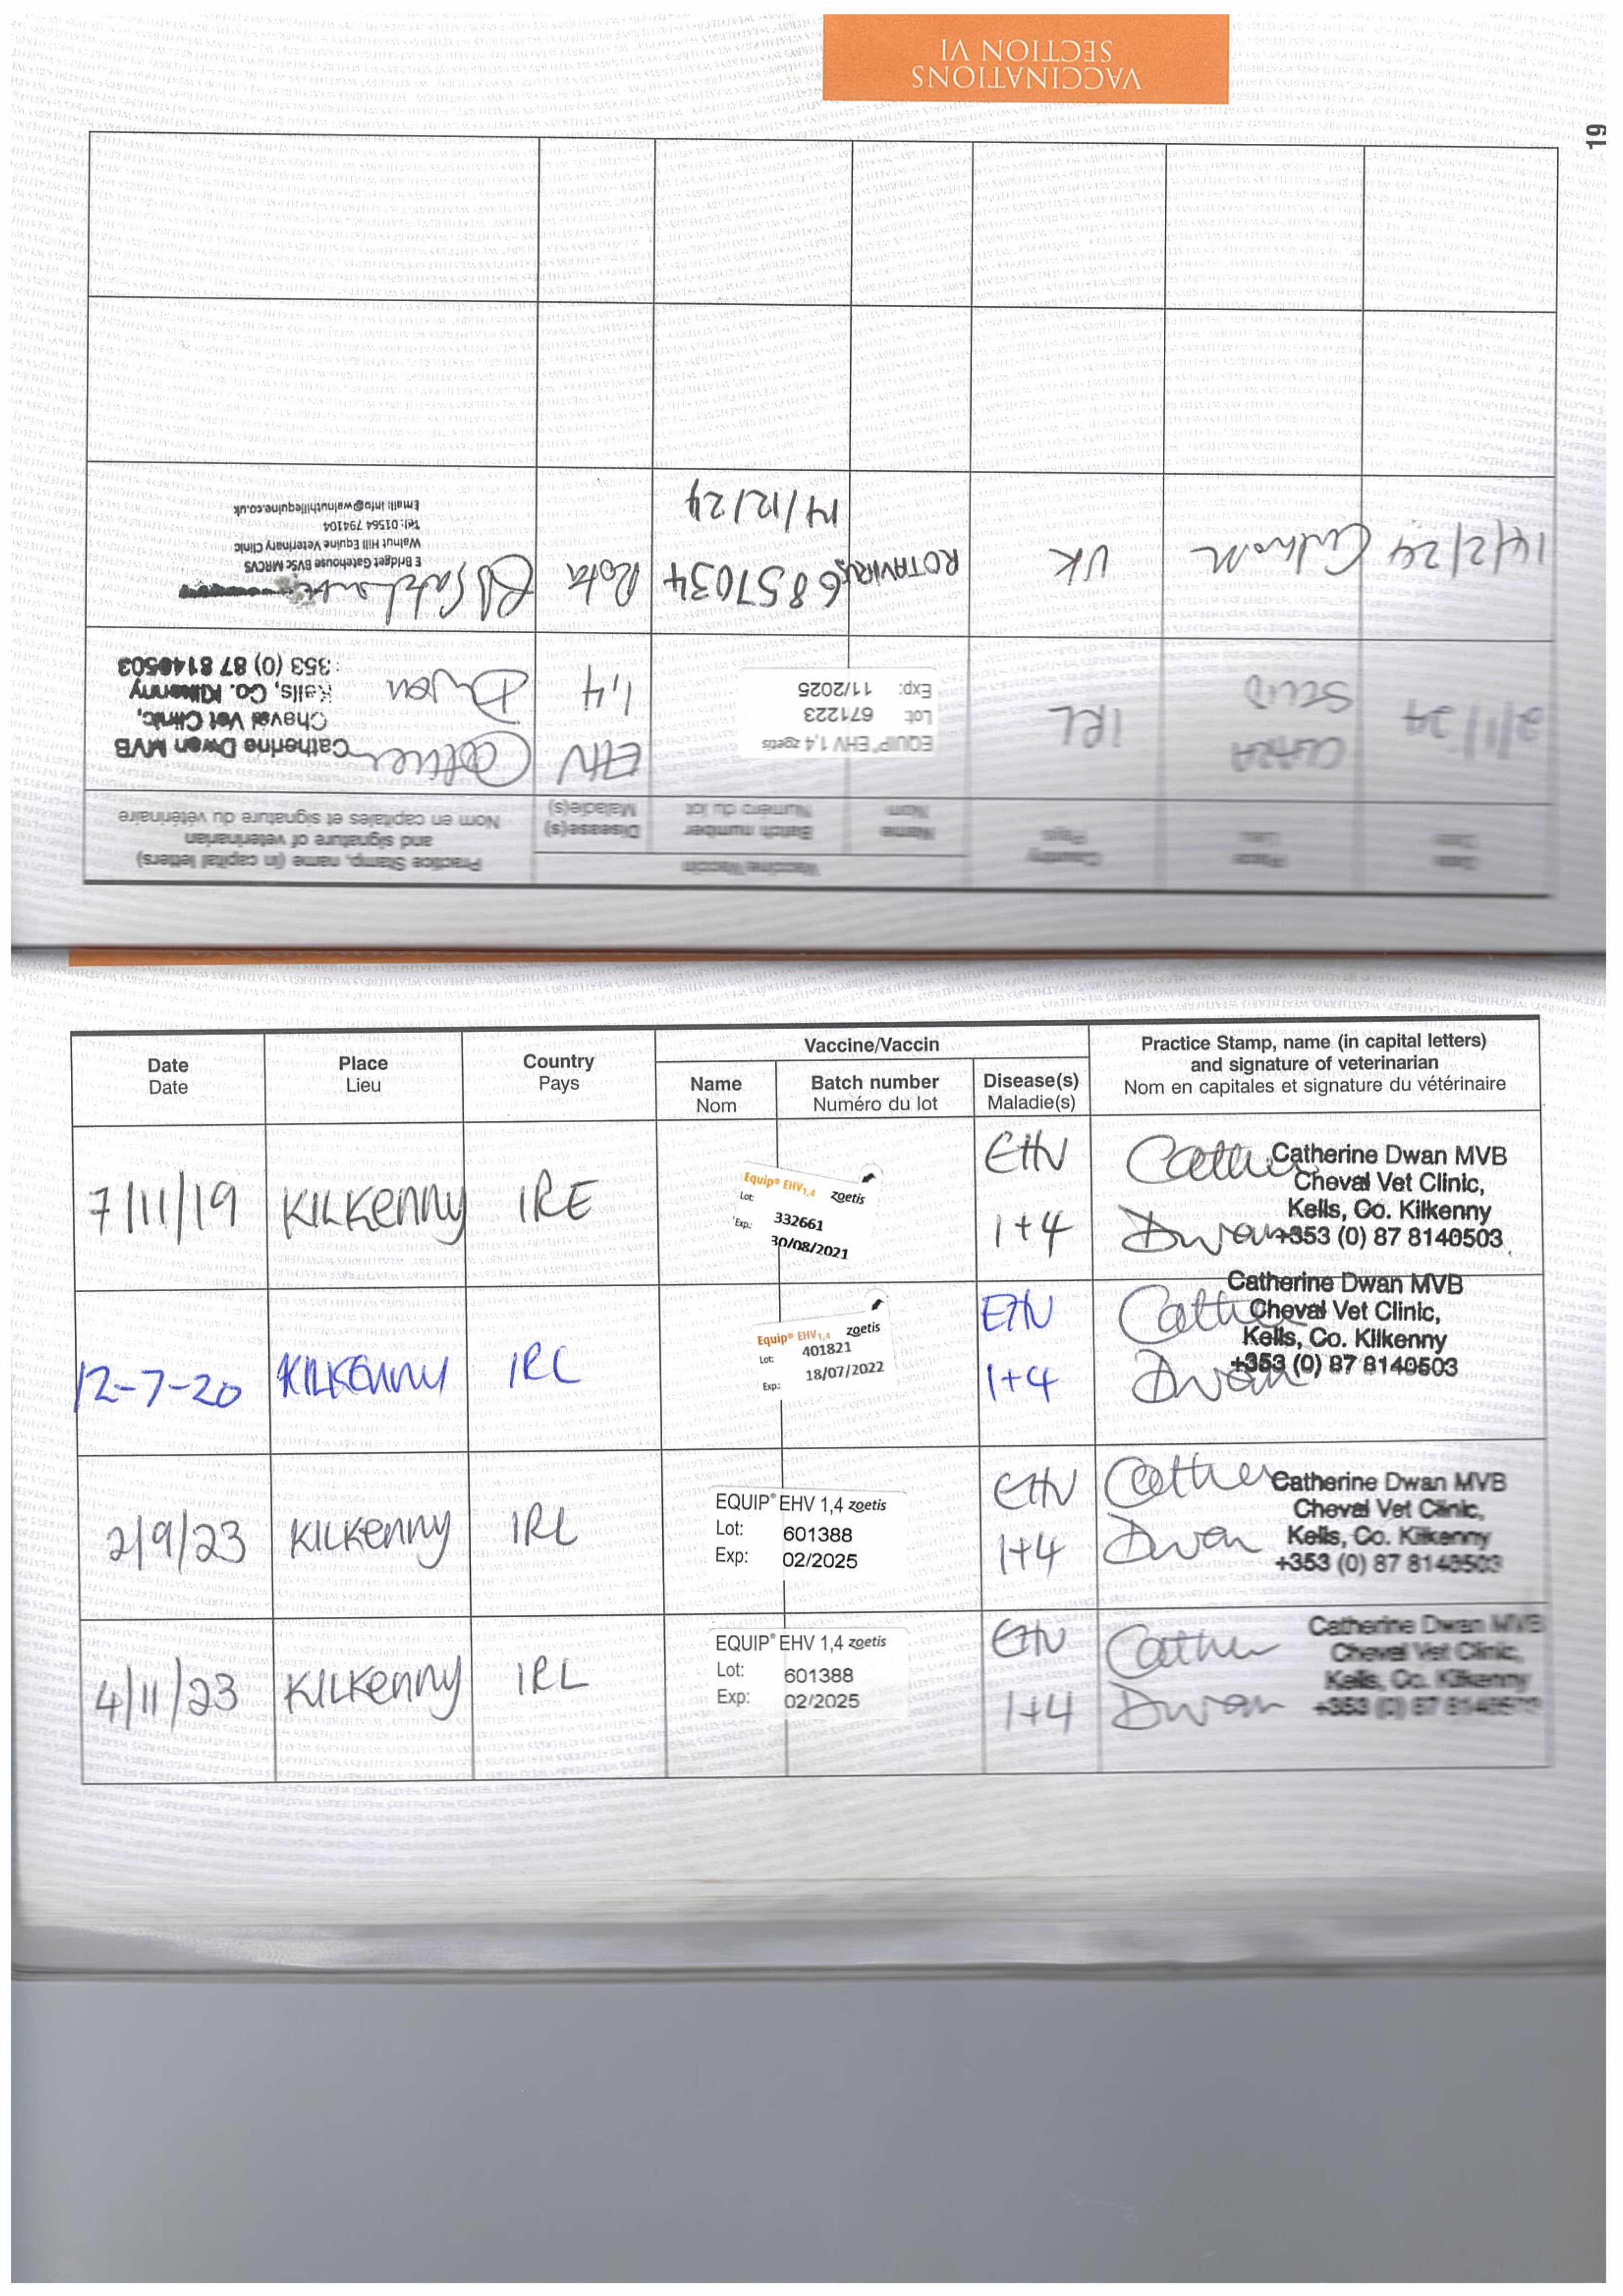 VACCINATIONS
SECTION VI
19
Practice Stamp, name (in capital letters)
and signature of veterinarian
Nom en capitales et signature du vétérinaire
Vaccine/Vaccin
Date
Date
Place
Lieu
Country
Pays
Name
Nom
Batch number
Numéro du lot
Disease(s)
Maladie(s)
2/11/24
CLARA
STUD
IRL
EQUIP® EHV 1,4 zoetis
Lot: 671223
Exp: 11/2025
EHV
1,4
Dwan
Catherine Dwan MVB
Cheval Vet Clinic,
Kells, Co. Kilkenny
353 (0) 87 8140503
14/2/24
UK
ROTAVIRUS
6857034
14/12/24
Rota
E Bridget Gatehouse BVSc MRCVS
Walnut Hill Equine Veterinary Clinic
Tel: 01564 794104
Email: info@walnuthillequine.co.uk
Date
Date
Place
Lieu
Country
Pays
Vaccine/Vaccin
Name
Nom
Batch number
Numéro du lot
Disease(s)
Maladie(s)
Practice Stamp, name (in capital letters)
and signature of veterinarian
Nom en capitales et signature du vétérinaire
7/11/19
KILKENNY
IRE
Equip® EHV1,4 zoetis
Lot: 332661
Exp.: 30/08/2021
EHV
1+4
Dwan
Catherine Dwan MVB
Cheval Vet Clinic,
Kells, Co. Kilkenny
+353 (0) 87 8140503
12-7-20
KILKENNY
IRL
Equip® EHV1,4 zoetis
Lot: 401821
Exp.: 18/07/2022
EHV
1+4
Dwan
Catherine Dwan MVB
Cheval Vet Clinic,
Kells, Co. Kilkenny
+353 (0) 87 8140503
2/9/23
KILKENNY
IRL
EQUIP® EHV 1,4 zoetis
Lot: 601388
Exp: 02/2025
EHV
1+4
Dwan
Catherine Dwan MVB
Cheval Vet Clinic,
Kells, Co. Kilkenny
+353 (0) 87 8140503
4/11/23
KILKENNY
IRL
EQUIP® EHV 1,4 zoetis
Lot: 601388
Exp: 02/2025
EHV
1+4
Dwan
Catherine Dwan MVB
Cheval Vet Clinic,
Kells, Co. Kilkenny